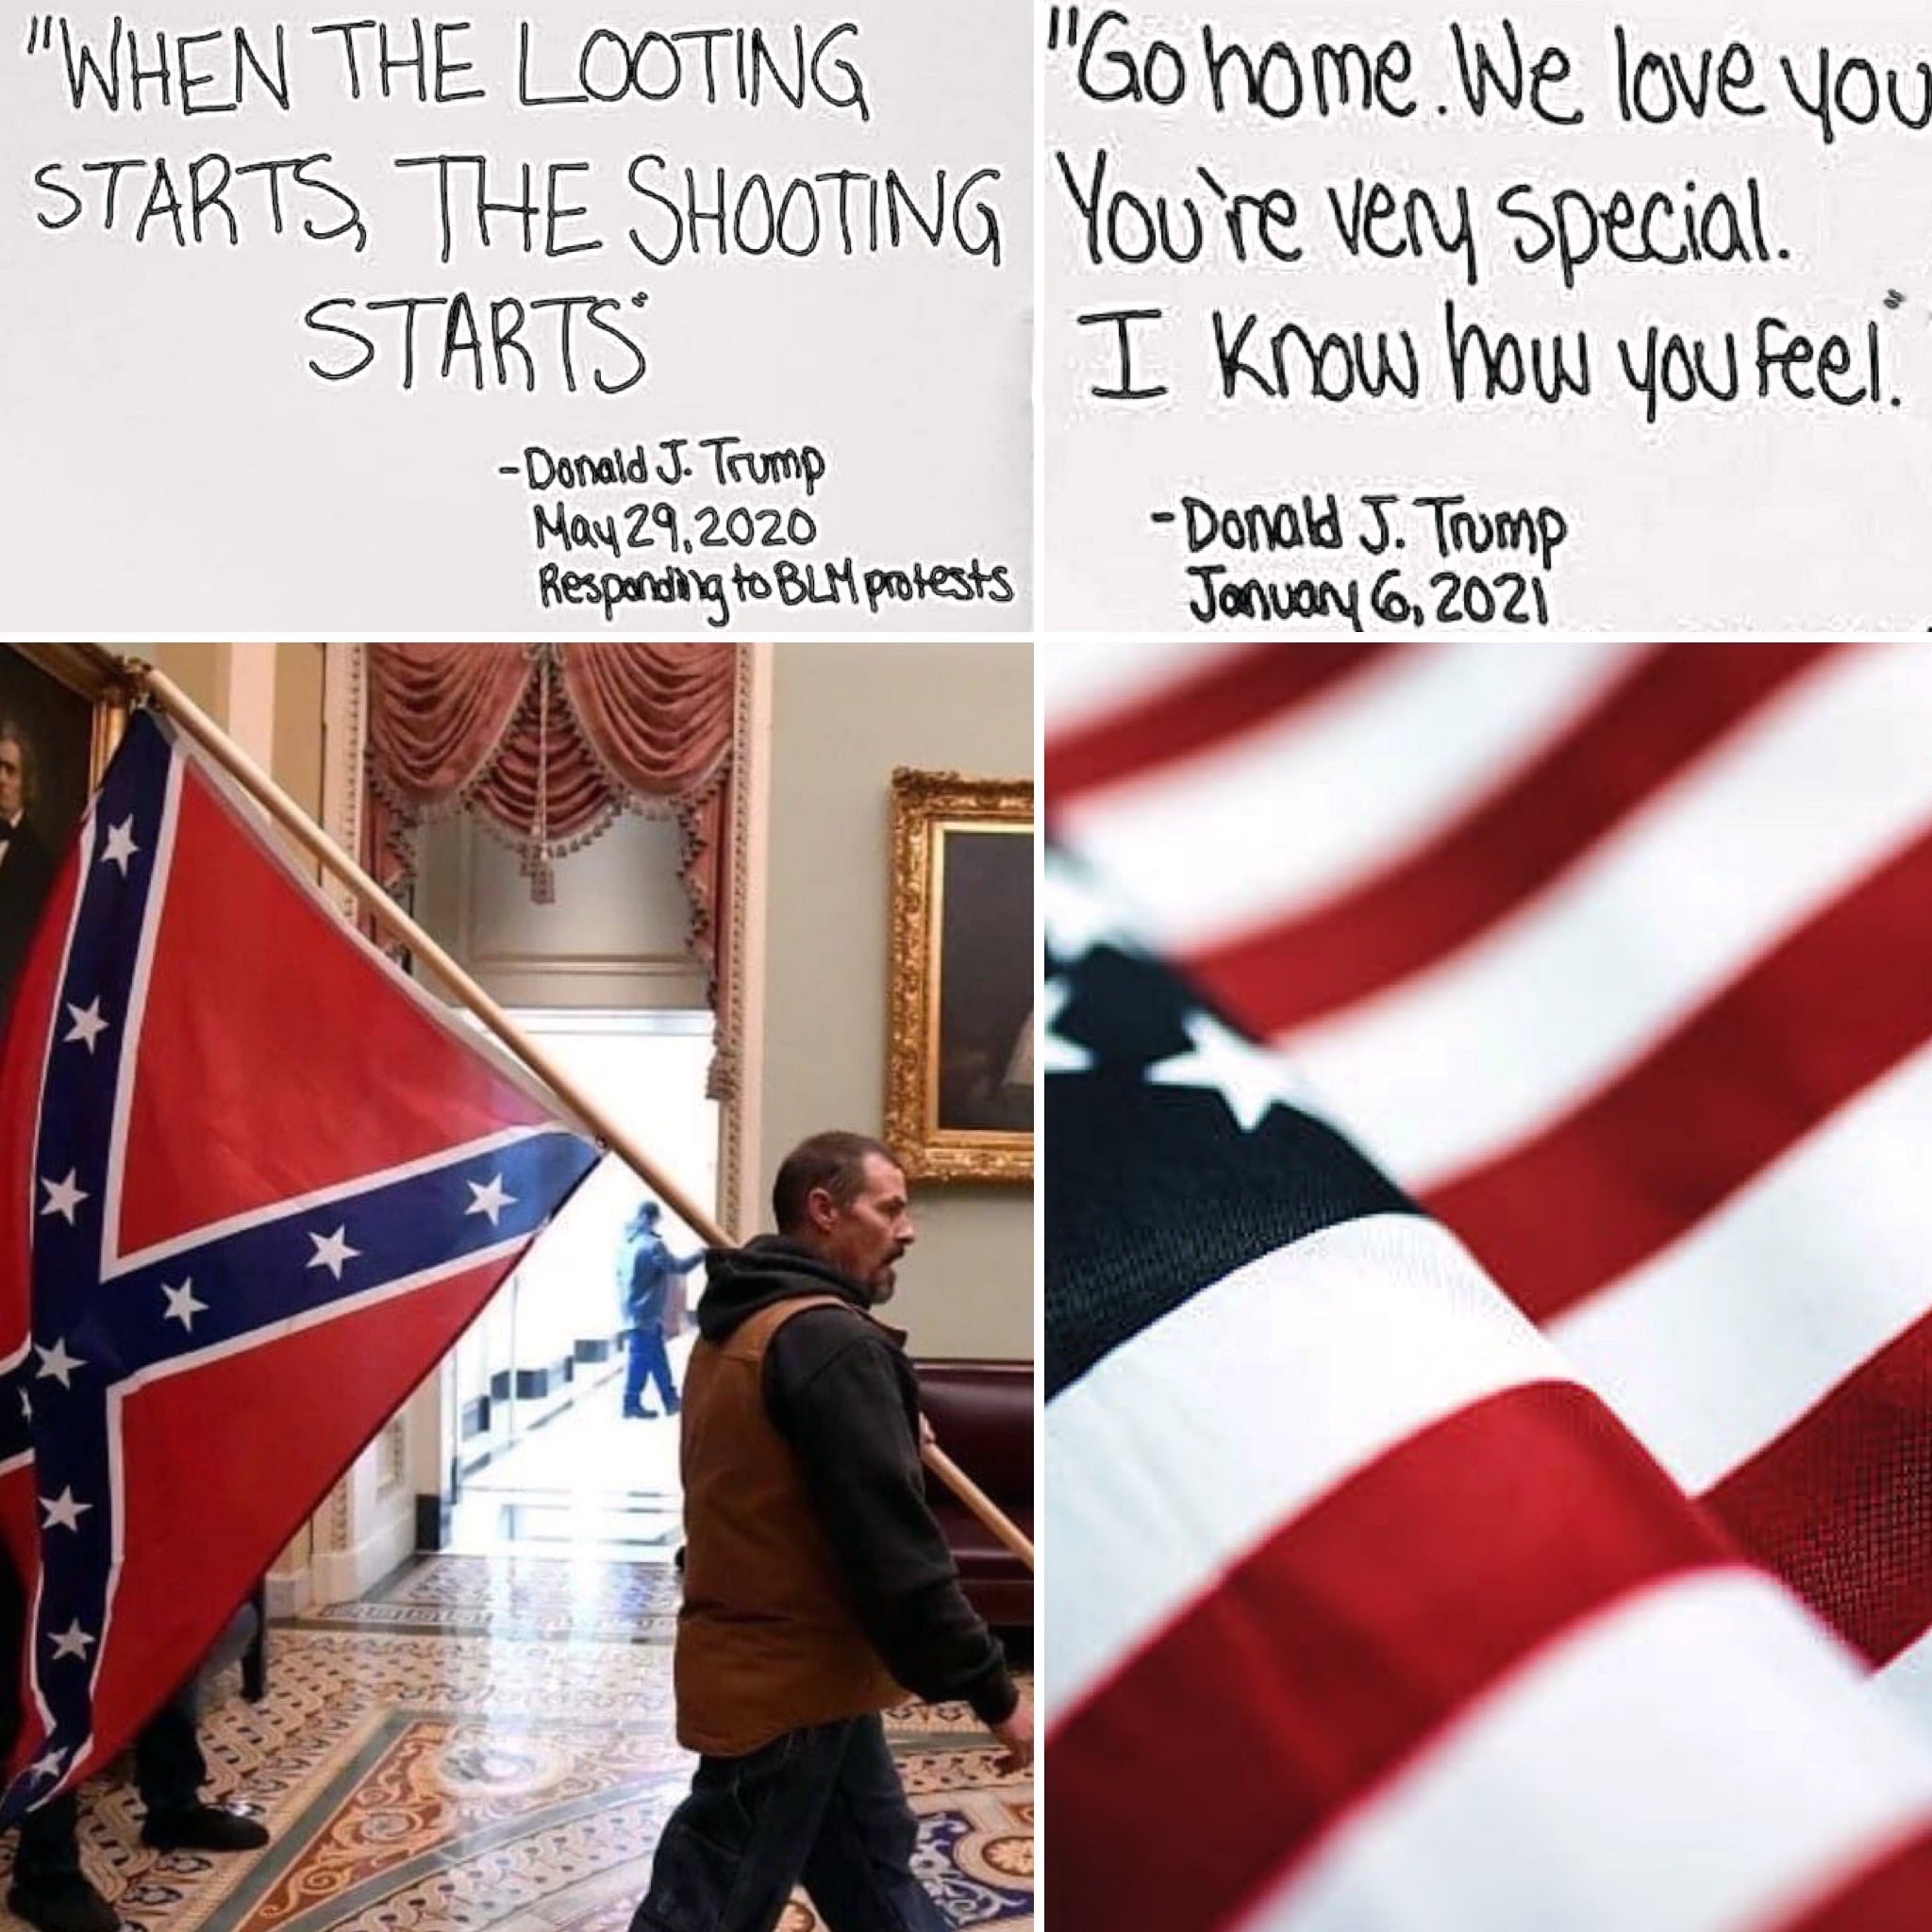 "WHEN THE LOOTING
STARTS, THE SHOOTING
STARTS"
-Donald J. Trump
May 29, 2020
Responding to BLM protests
"Go home. We love you
You're very special.
I know how you feel."
-Donald J. Trump
January 6, 2021